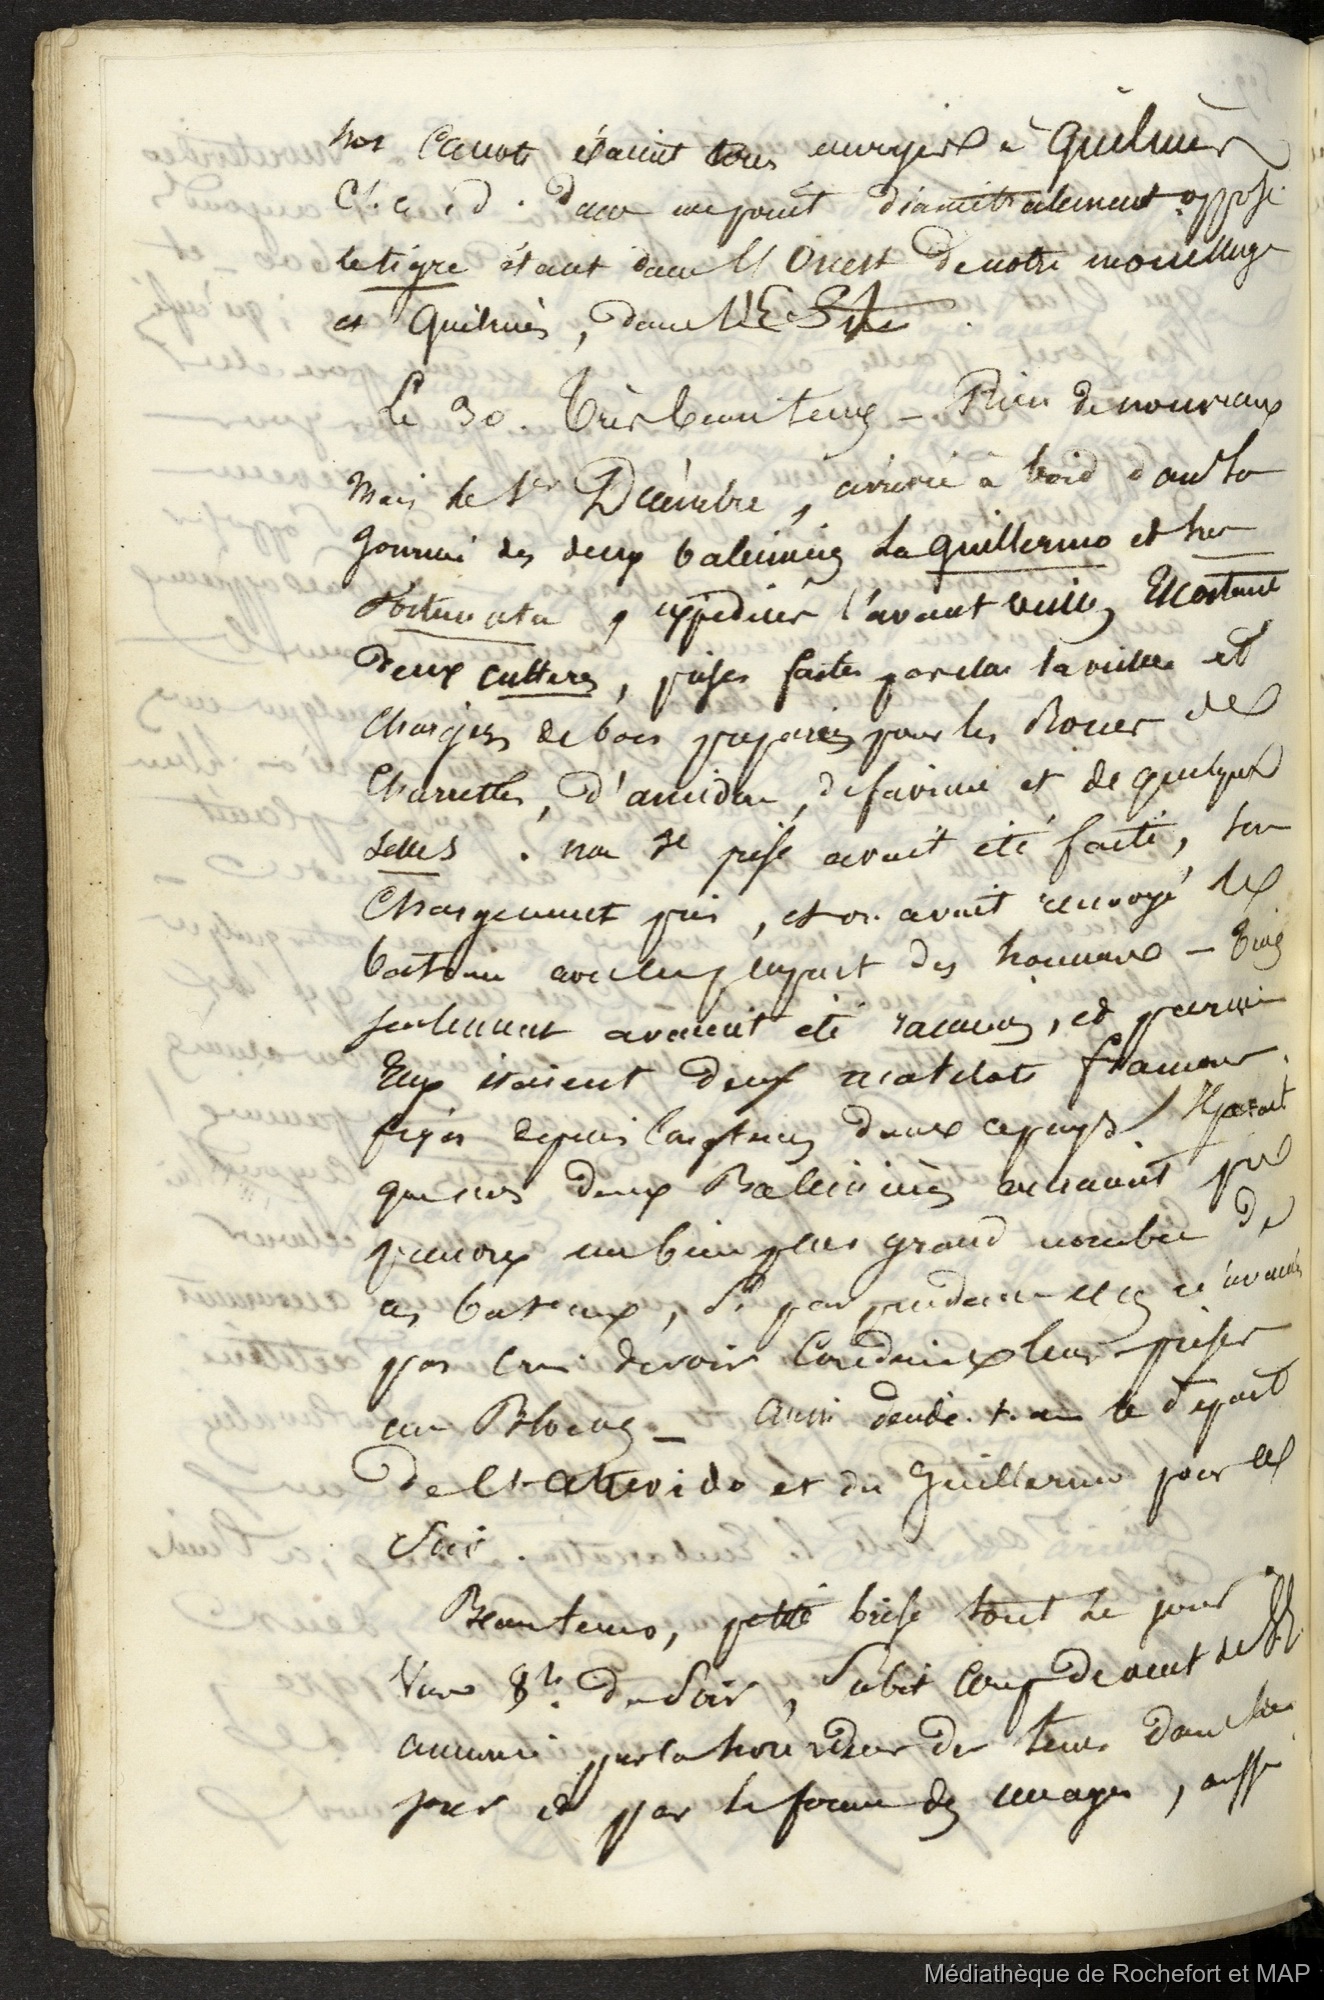 nos canots étaient tous envoyés à Quilmès
c'. a. d. dans un point diamétralement opposé
le tigre étant dans l'Ouest de notre mouillage
et Quilmès, dans l'Est
Le 30. Très beau tems – Rien de nouveau
mais le 1er Décembre, arrivée à bord dans la
journée des deux baleinières la Guillermo et la
Fortunata, expédiées l'avant veille, Escortant
deux cutters, prises faites par elles la veille et
chargés de bois préparés pour les Roues de
charrettes, d'amidon, de farine et de quelques
selles. une 3e prise avait été faite, son
chargement pris, et on avait renvoyé le
bateau avec la plupart des hommes – Cinq
seulement avaient été ramenés, et parmi
Eux étaient deux matelots français
fixés depuis longtems dans ce pays. Il parait
que nos deux Baleinières auraient pu
prendre un bien plus grand nombre de
ces bateaux, si par prudence elles n'avaient
pas cru devoir conduire leurs prises
au Blocus – Aussi décide-t-on le départ
de l'Atrevido et du Guillermo pour ce
soir.
Beau tems, petite brise tout le jour
Vers 8h. du soir, subit coup de vent de
annoncé par la lourdeur du tems dans le
jour et par la forme des nuages, aussi
Médiathèque de Rochefort et MAP